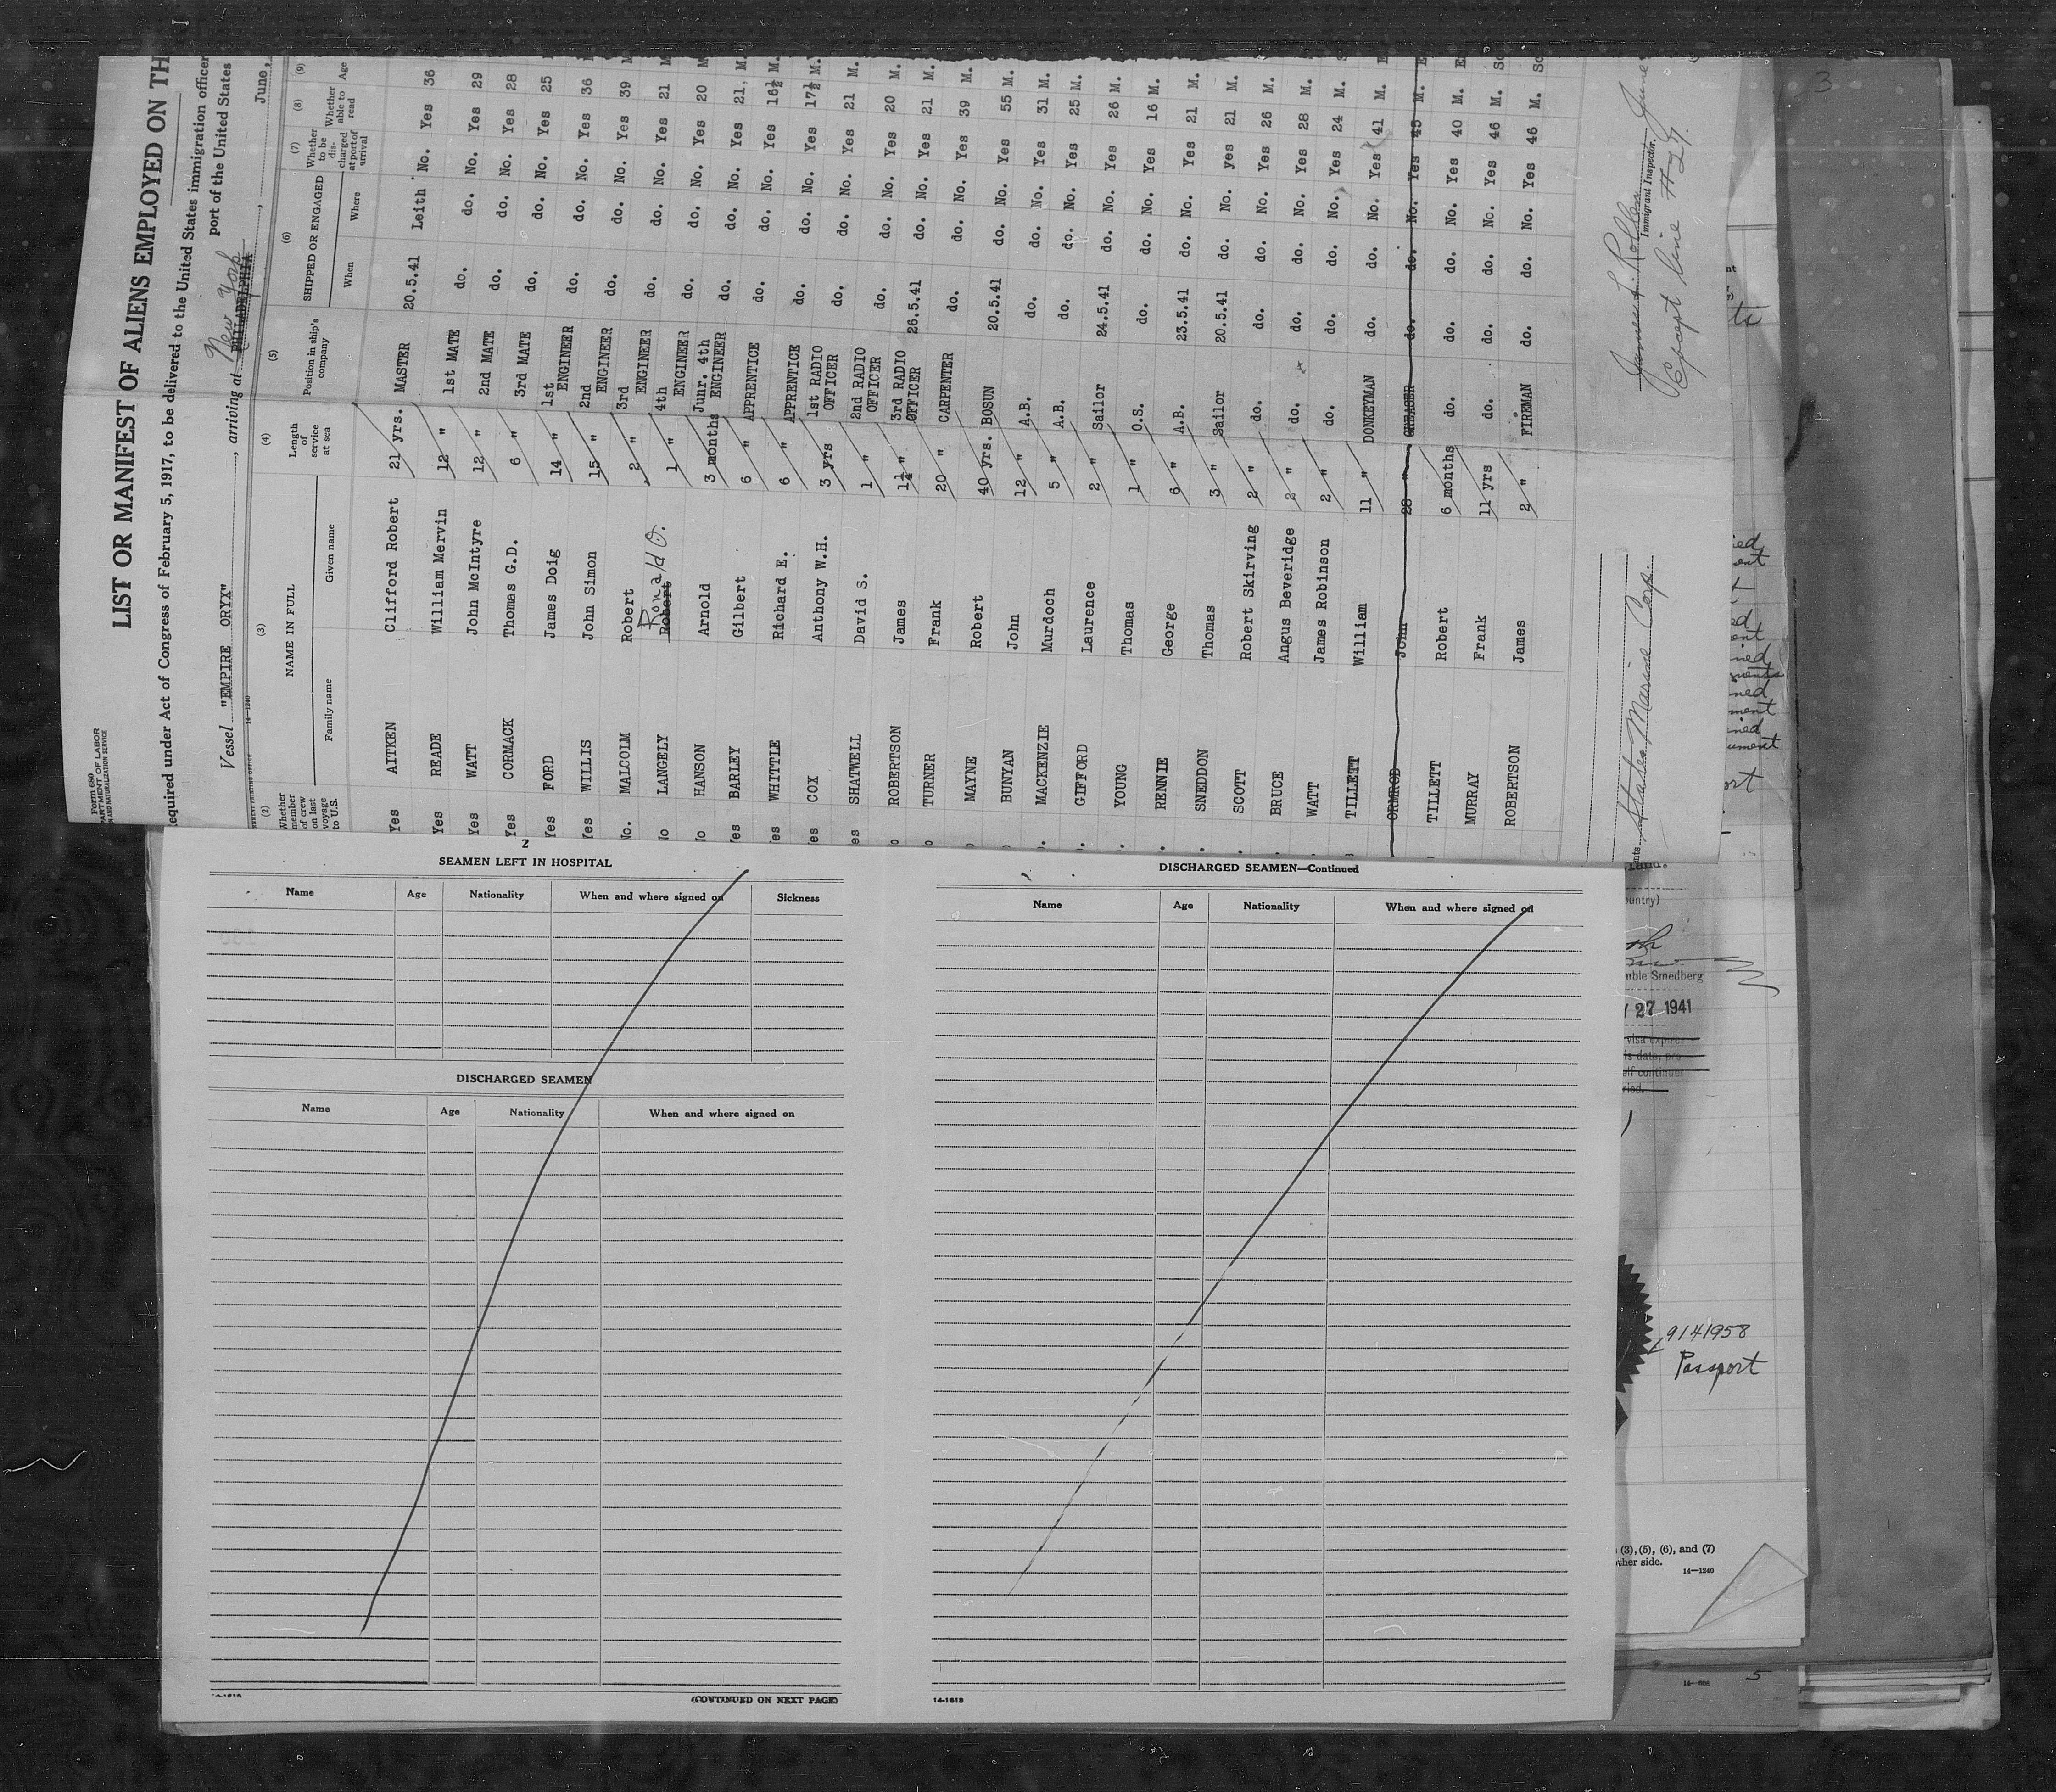 Form 680
LIST OR MANIFEST OF ALIENS EMPLOYED ON TH
equired under Act of Congress of February 5, 1917, to be delivered to the United States immigration officer
port of the United States
Vessel "EMPIRE ORYX", arriving at PHILADELPHIA New York, June,
14-1240
(2) Whether member of crew on last voyage to U.S. (3) NAME IN FULL Family name Given name (4) Length of service at sea (5) Position in ship's company (6) SHIPPED OR ENGAGED When Where (7) Whether to be discharged at port of arrival (8) Whether able to read (9) Age
Yes AITKEN Clifford Robert 21 yrs. MASTER 20.5.41 Leith No. Yes 36
Yes READE William Mervin 12 " 1st MATE do. do. No. Yes 29
Yes WATT John McIntyre 12 " 2nd MATE do. do. No. Yes 28
Yes CORMACK Thomas G.D. 6 " 3rd MATE do. do. No. Yes 25
Yes FORD James Doig 14 " 1st ENGINEER do. do. No. Yes 36
Yes WILLIS John Simon 15 " 2nd ENGINEER do. do. No. Yes 39 M
No. MALCOLM Robert 2 " 3rd ENGINEER do. do. No. Yes 21 M
No LANGELY Robert Ronald O. 1 " 4th ENGINEER do. do. No. Yes 20 M
No HANSON Arnold 3 months Junr. 4th ENGINEER do. do. No. Yes 21. M.
Yes BARLEY Gilbert 6 " APPRENTICE do. do. No. Yes 16½ M.
Yes WHITTLE Richard E. 6 " APPRENTICE do. do. No. Yes 17½ M.
Yes COX Anthony W.H. 3 yrs 1st RADIO OFFICER do. do. No. Yes 21 M.
es SHATWELL David S. 1 " 2nd RADIO OFFICER do. do. No. Yes 20 M.
o ROBERTSON James 1¼ " 3rd RADIO OFFICER 26.5.41 do. No. Yes 21 M.
o TURNER Frank 20 " CARPENTER do. do. No. Yes 39 M.
MAYNE Robert 40 yrs. BOSUN 20.5.41 do. No. Yes 55 M.
BUNYAN John 12 " A.B. do. do. No. Yes 31 M.
MACKENZIE Murdoch 5 " A.B. do. do. No. Yes 25 M.
GIFFORD Laurence 2 " Sailor 24.5.41 do. No. Yes 26 M.
YOUNG Thomas 1 " O.S. do. do. No. Yes 16 M.
RENNIE George 6 " A.B. 23.5.41 do. No. Yes 21 M.
SNEDDON Thomas 3 " Sailor 20.5.41 do. No. yes 21 M.
SCOTT Robert Skirving 2 " do. do. do. No. Yes 26 M.
BRUCE Angus Beveridge 2 " do. do. do. No. Yes 28 M.
WATT James Robinson 2 " do. do. do. No. Yes 24 M.
TILLETT William 11 " DONKEYMAN do. do. No. Yes 41 M.
ORMROD John 28 " GREASER do. do. No. Yes 45 M. E
TILLETT Robert 6 months do. do. do. No. Yes 40 M. E
MURRAY Frank 11 yrs do. do. do. No. Yes 46 M. Sc
ROBERTSON James 2 " FIREMAN do. do. No. Yes 46 M. Sc
States Marine Corp.
Immigrant Inspector. June
Except line #27.
2
SEAMEN LEFT IN HOSPITAL
Name Age Nationality When and where signed on Sickness
DISCHARGED SEAMEN
Name Age Nationality When and where signed on
(CONTINUED ON NEXT PAGE)
DISCHARGED SEAMEN—Continued
Name Age Nationality When and where signed on
14-1613
3
untry)
mble Smedberg
27 1941
visa expire
is date, pro
elf continue
riod.
9141958
Passport
(3), (5), (6), and (7)
ther side.
14-1240
5